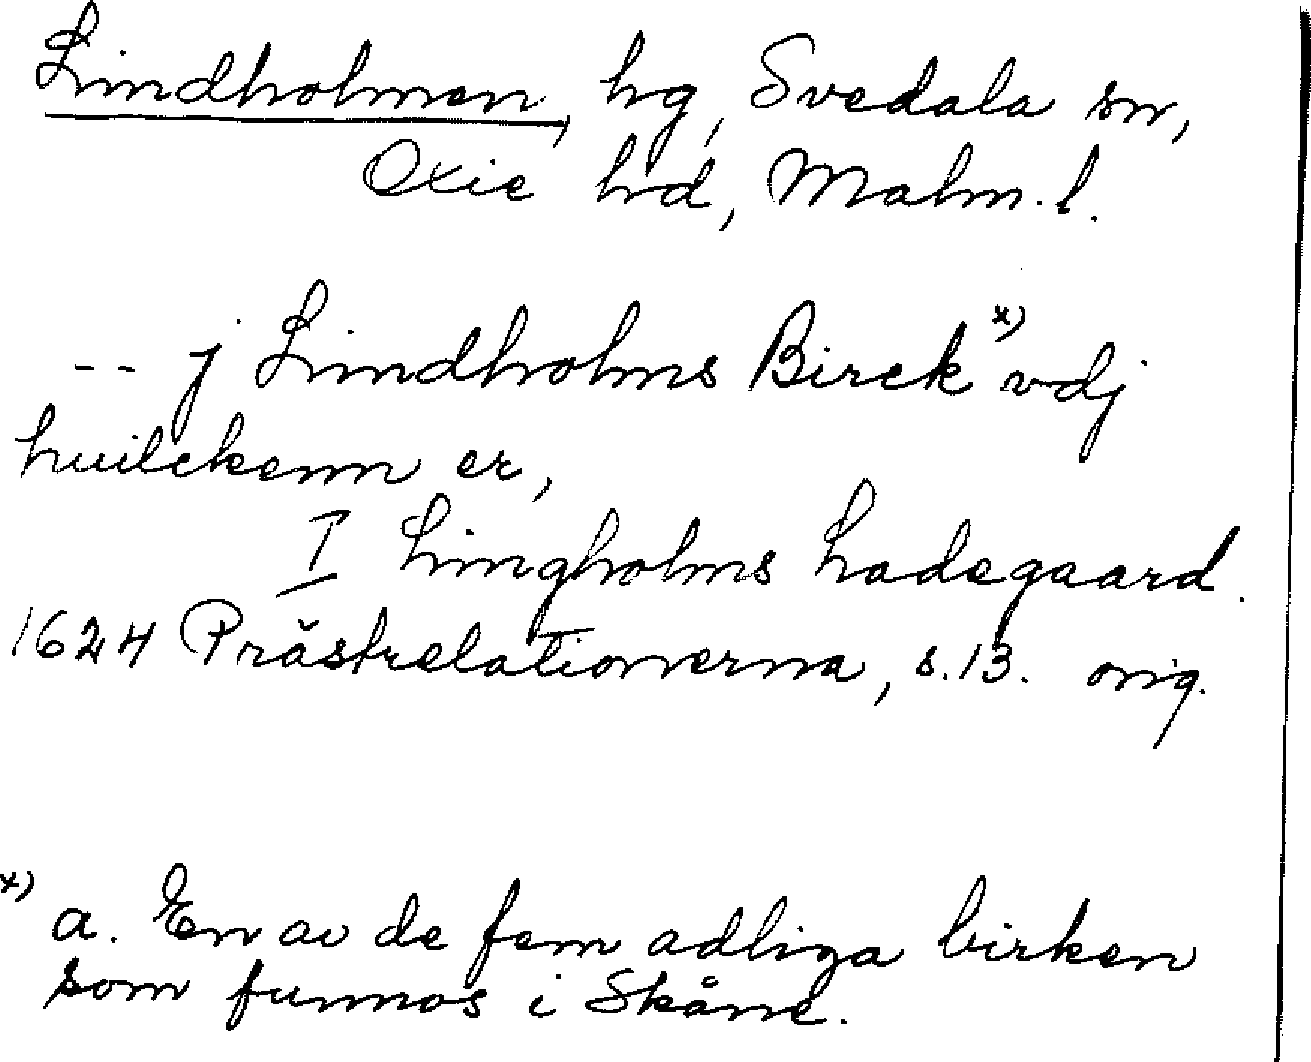 Lindholmen, hg, Svedala sn,
Oxie hd, Malm. l.
-- j Lindholms Birck x) vdj
huilckenn er,
I Lingholms Ladegaard.
1624 Prästrelationerna, s. 13. orig.
x) a. En av de fem adliga birken
som funnos i Skåne.